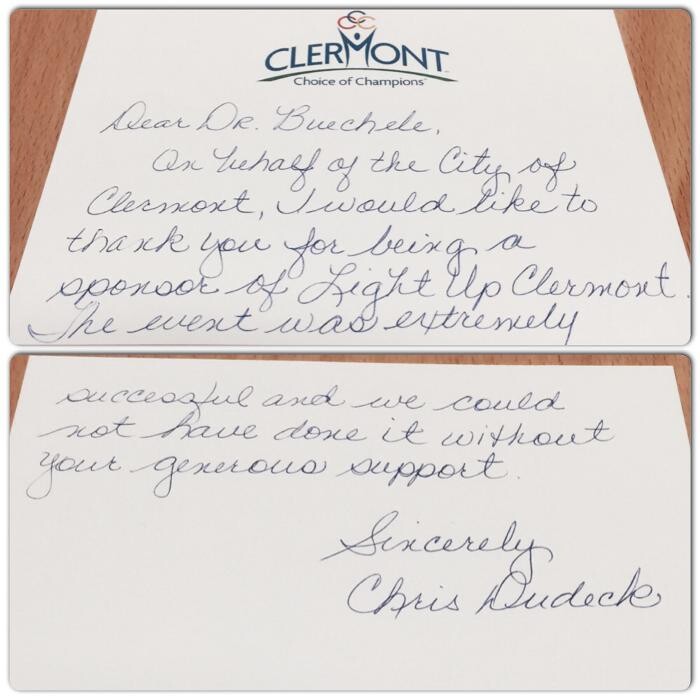 CLERMONT
Choice of Champions
Dear Dr. Buechele,
On behalf of the City of
Clermont, I would like to
thank you for being a
sponsor of Light Up Clermont.
The event was extremely
successful and we could
not have done it without
your generous support.
Sincerely
Chris Dudeck